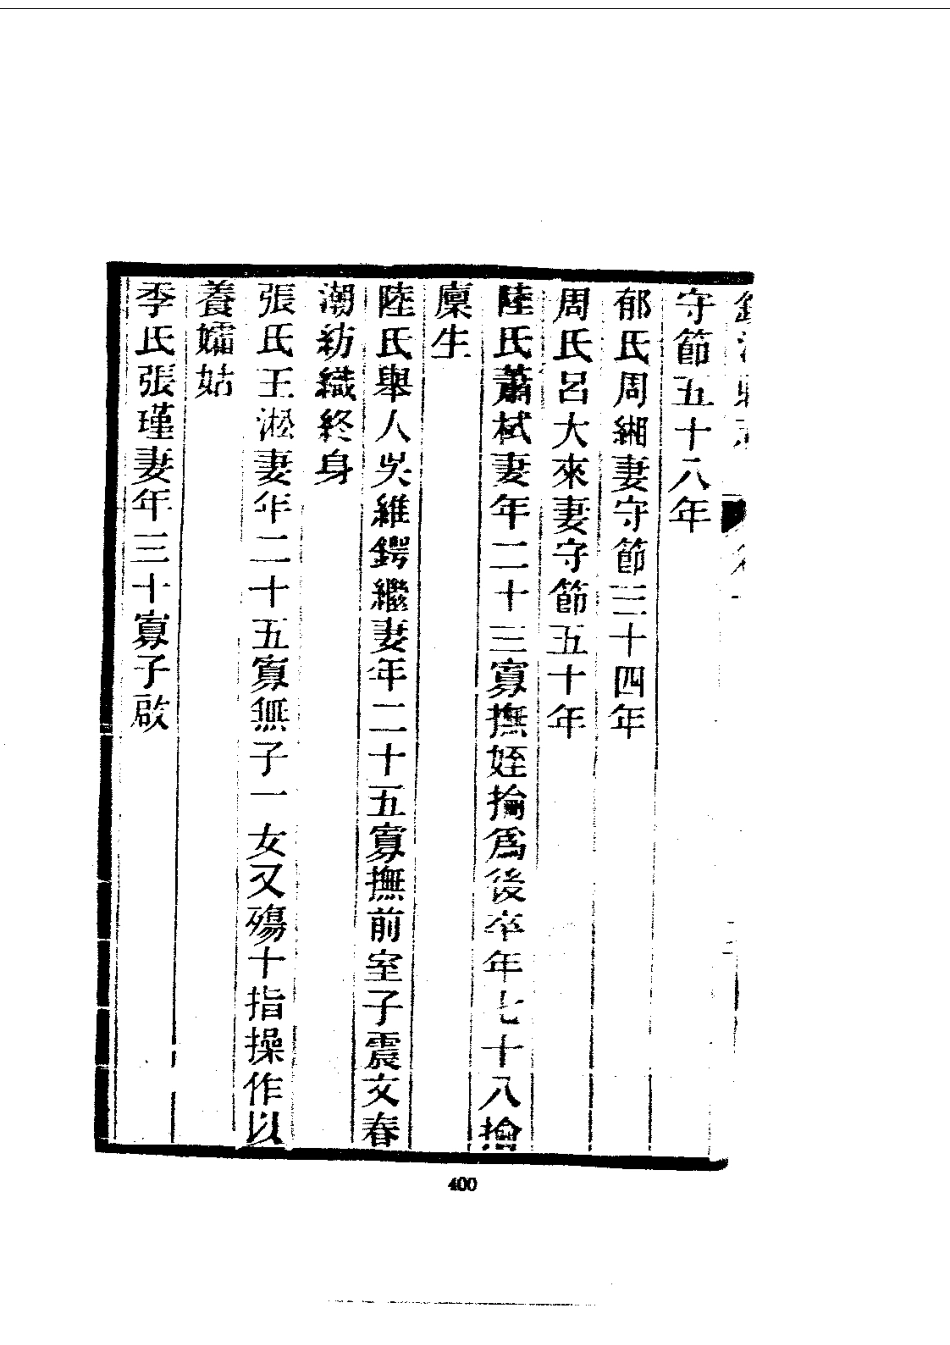 守節五十八年
郁氏周緗妻守節三十四年
周氏呂大來妻守節五十年
陸氏蕭栻妻年二十三寡撫姪掄爲後卒年七十八掄
廩生
陸氏舉人吳維鍔繼妻年二十五寡撫前室子震文春
潮紡織終身
張氏王淞妻年二十五寡無子一女又殤十指操作以
養孀姑
季氏張瑾妻年三十寡子啟
400